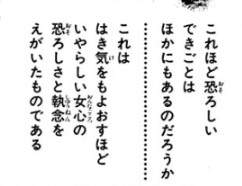 これほど恐ろしい
できごとは
ほかにもあるのだろうか
これは
はき気をもよおすほど
いやらしい女心の
恐ろしさと執念を
えがいたものである